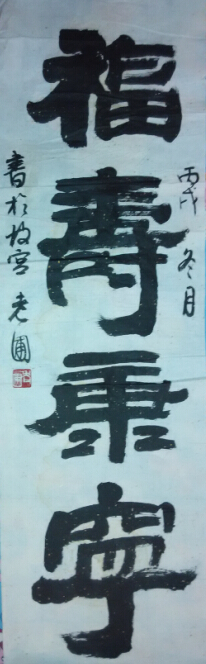 福壽康寧
丙戌冬月
書於故宮老圃